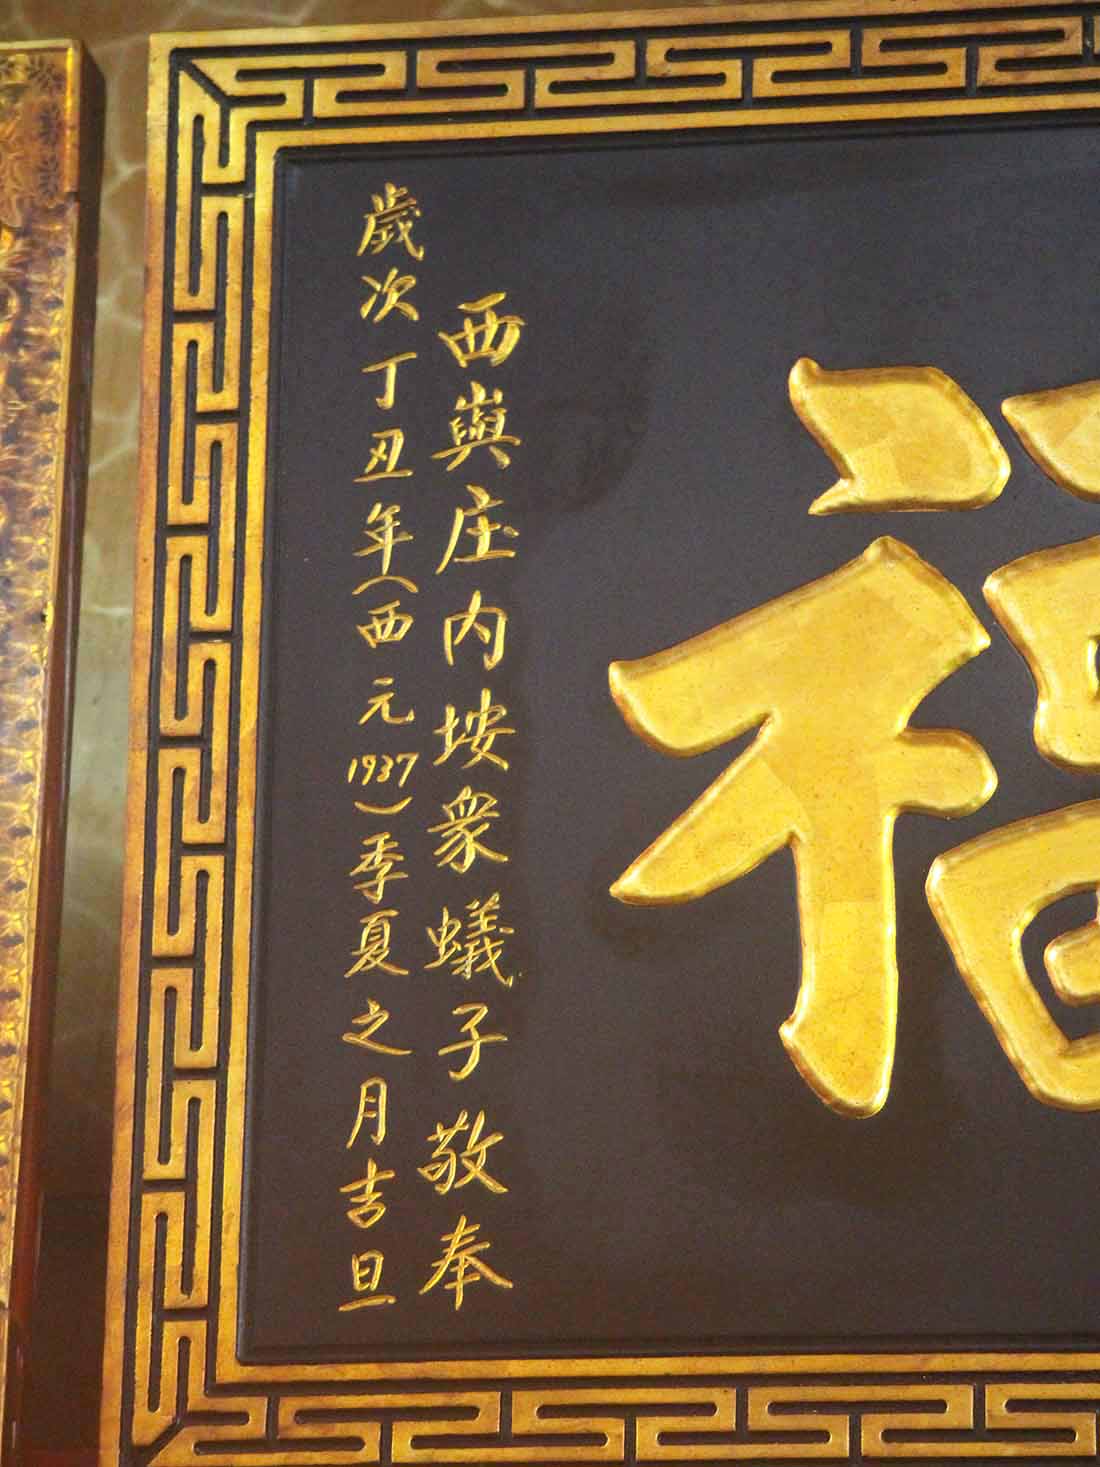 福
西嶼庄内垵衆蟻子敬奉
歲次丁丑年(西元1937)季夏之月吉旦